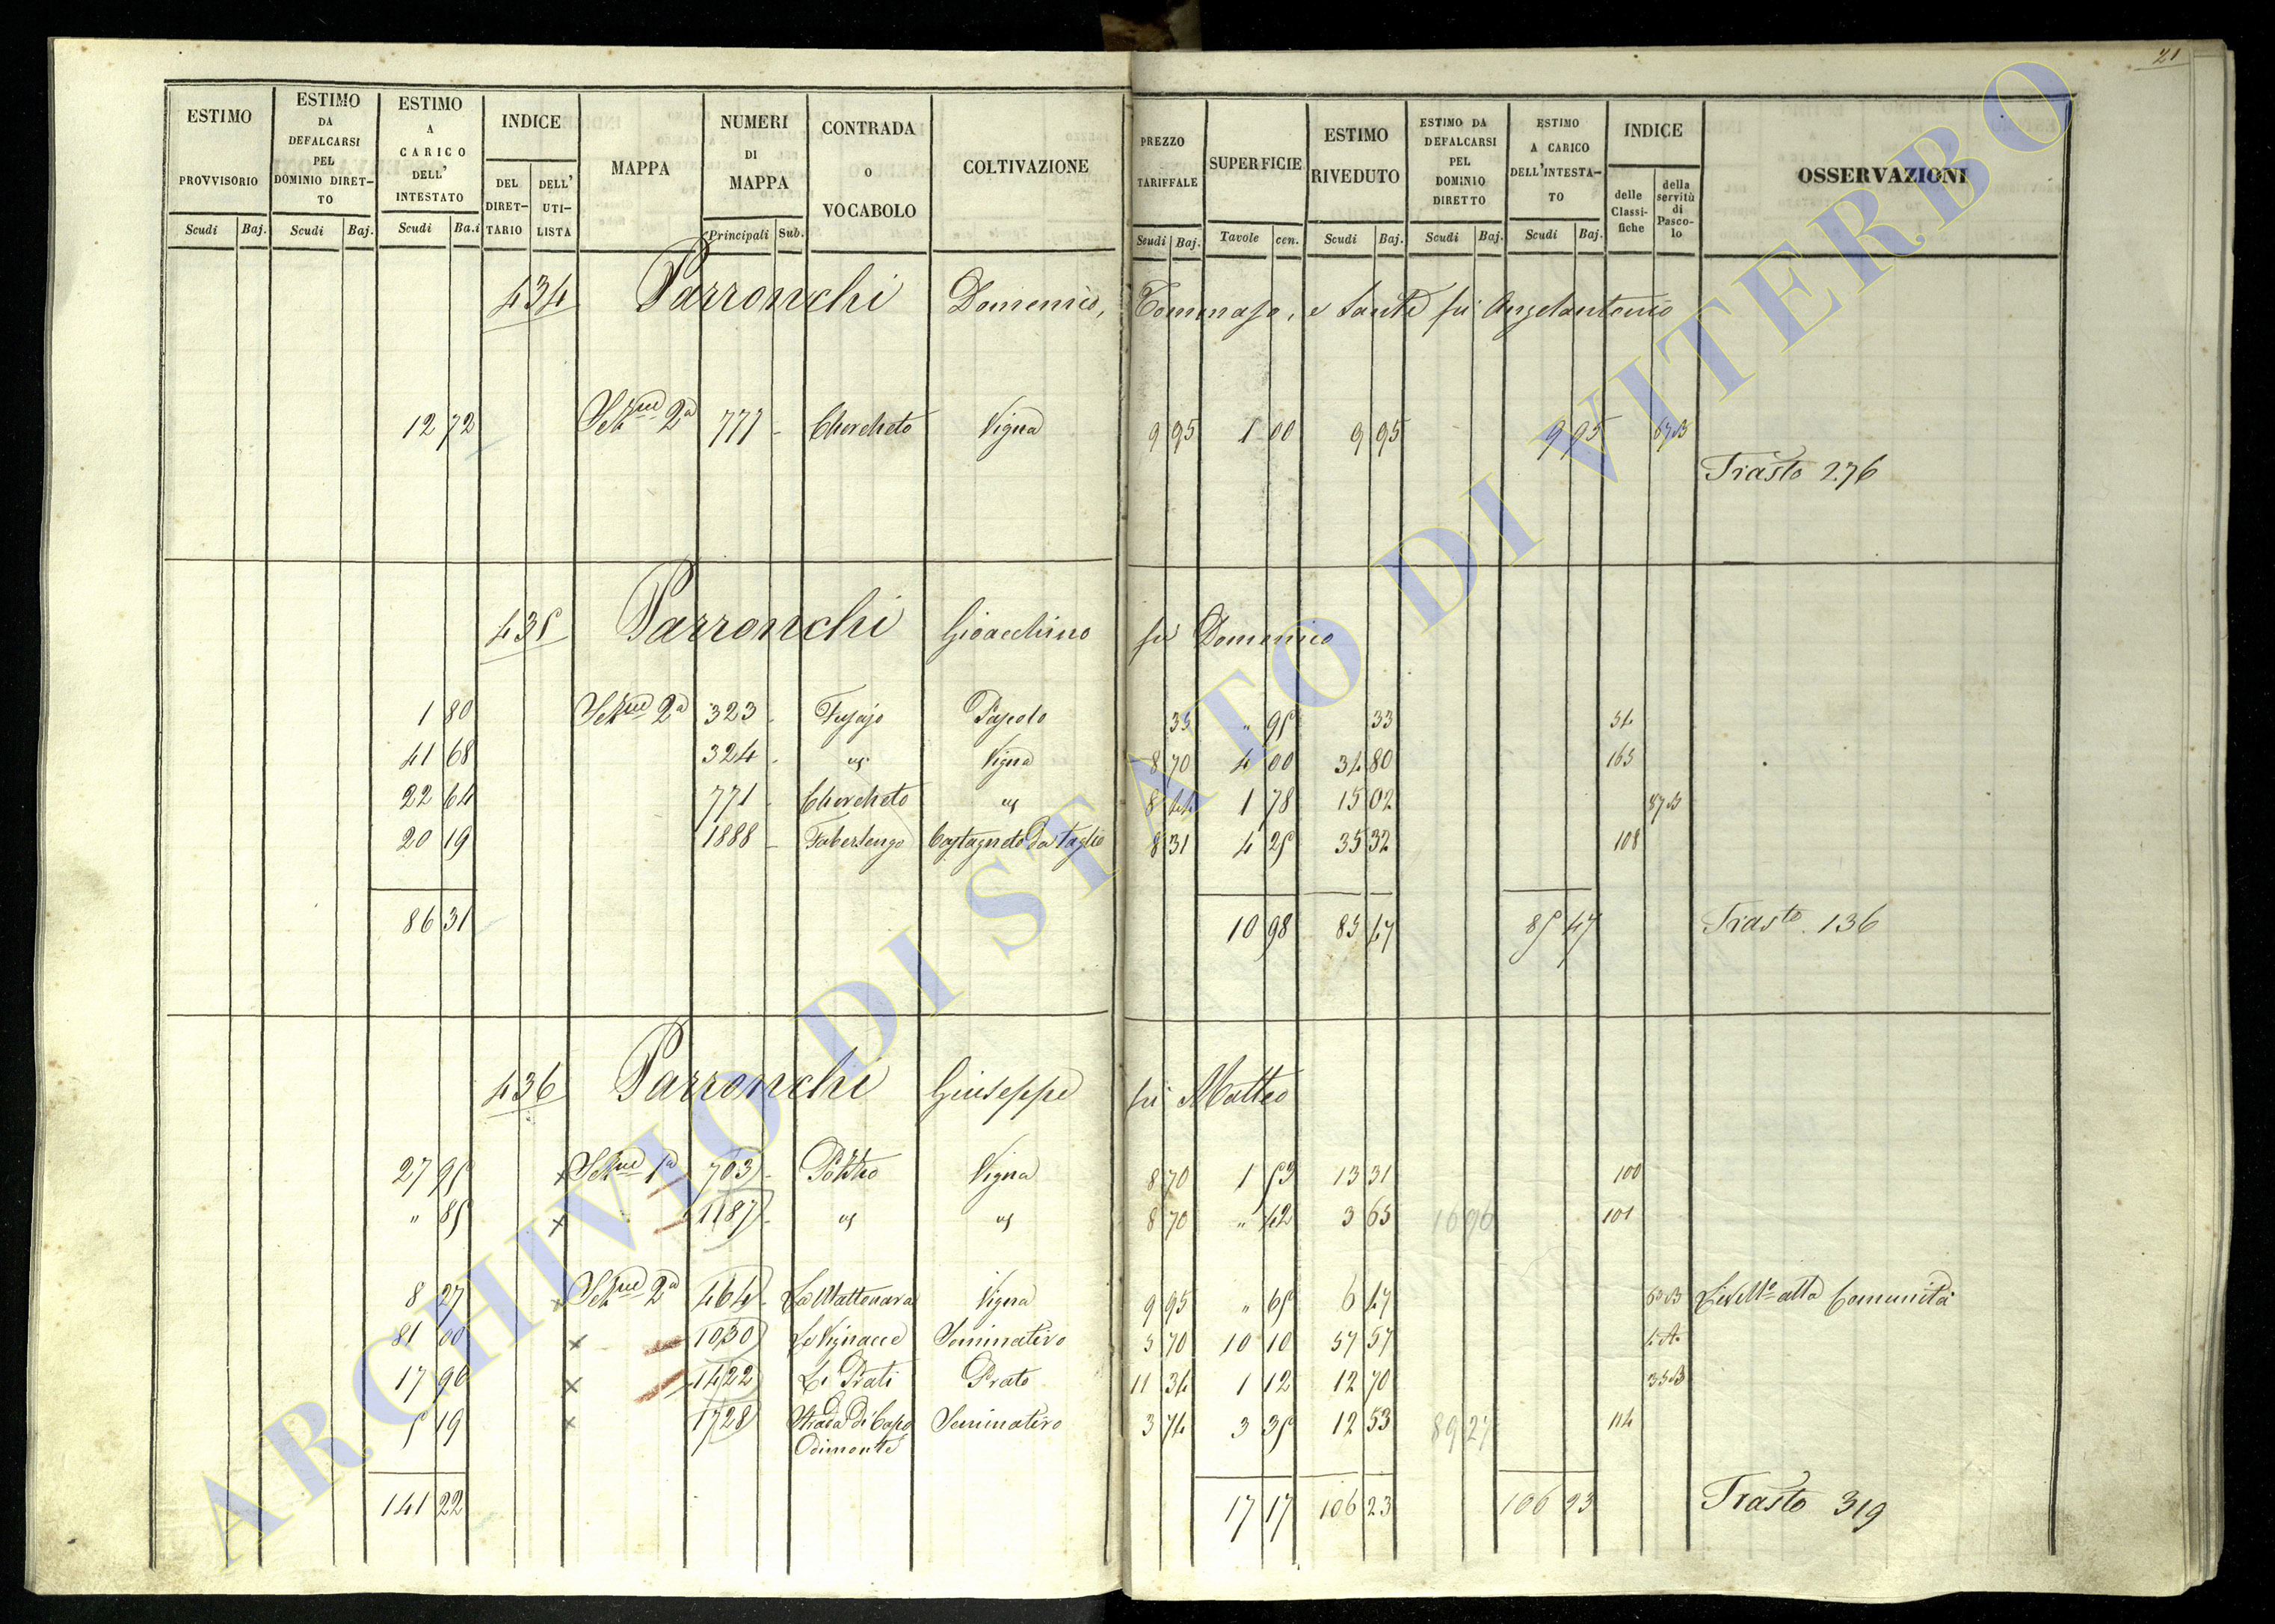 21
ESTIMO PROVVISORIO Scudi Baj.
ESTIMO DA DEFALCARSI PEL DOMINIO DIRET-TO Scudi Baj.
ESTIMO A CARICO DELL' INTESTATO Scudi Ba.i
INDICE DEL DIRET-TARIO DELL' UTI-LISTA
MAPPA
NUMERI DI MAPPA Principali Sub.
CONTRADA O VOCABOLO
COLTIVAZIONE
PREZZO TARIFFALE Scudi Baj.
SUPERFICIE Tavole cen.
ESTIMO RIVEDUTO Scudi Baj.
ESTIMO DA DEFALCARSI PEL DOMINIO DIRETTO Scudi Baj.
ESTIMO A CARICO DELL'INTESTA-TO Scudi Baj.
INDICE delle Classi-fiche della servitù di Pasco-lo
OSSERVAZIONI
434 Parronchi Domenico, Tommaso, e Sante fu Angelantonio
12 72 Sezne 2a 777 - Chercheto Vigna 9 95 1 00 9 95 9 95
Trasto 276
435 Parronchi Gioacchino fu Domenico
1 80 Sezne 2a 323 - Pascolo 35 " 95 33 34
41 68 324 - Vigna 8 70 4 00 34 80 163
22 64 771 - Chercheto 8 44 1 78 15 02
20 19 1888 - Castagneto da Taglio 8 31 4 25 35 32 108
86 31 10 98 85 47 85 47 Trasto 136
436 Parronchi Giuseppe fu Matteo
27 95 x Sezne 1a 703 - Vigna 8 70 1 53 13 31 100
" 85 x 1187 - 8 70 " 42 3 65 16 96 101
8 27 x Sezne 2a 464 - La Mattonara Vigna 9 95 " 65 6 47 Livello alla Comunità
81 00 x 1030 Le Vignacce Seminativo 5 70 10 10 57 57 4 A
17 96 x 1422 Li Prati Prato 11 34 1 12 12 70
5 19 x 1728 Strada di Capo Seminativo 3 74 3 35 12 53 89 27 114
dimonte
141 22 17 17 106 23 106 23 Trasto 319
ARCHIVIO DI STATO DI VITERBO